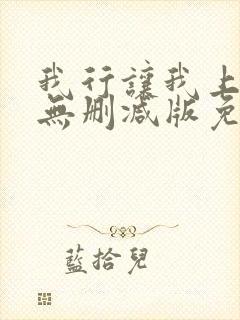 我行讓我上
無刪減版免
藍拾兒